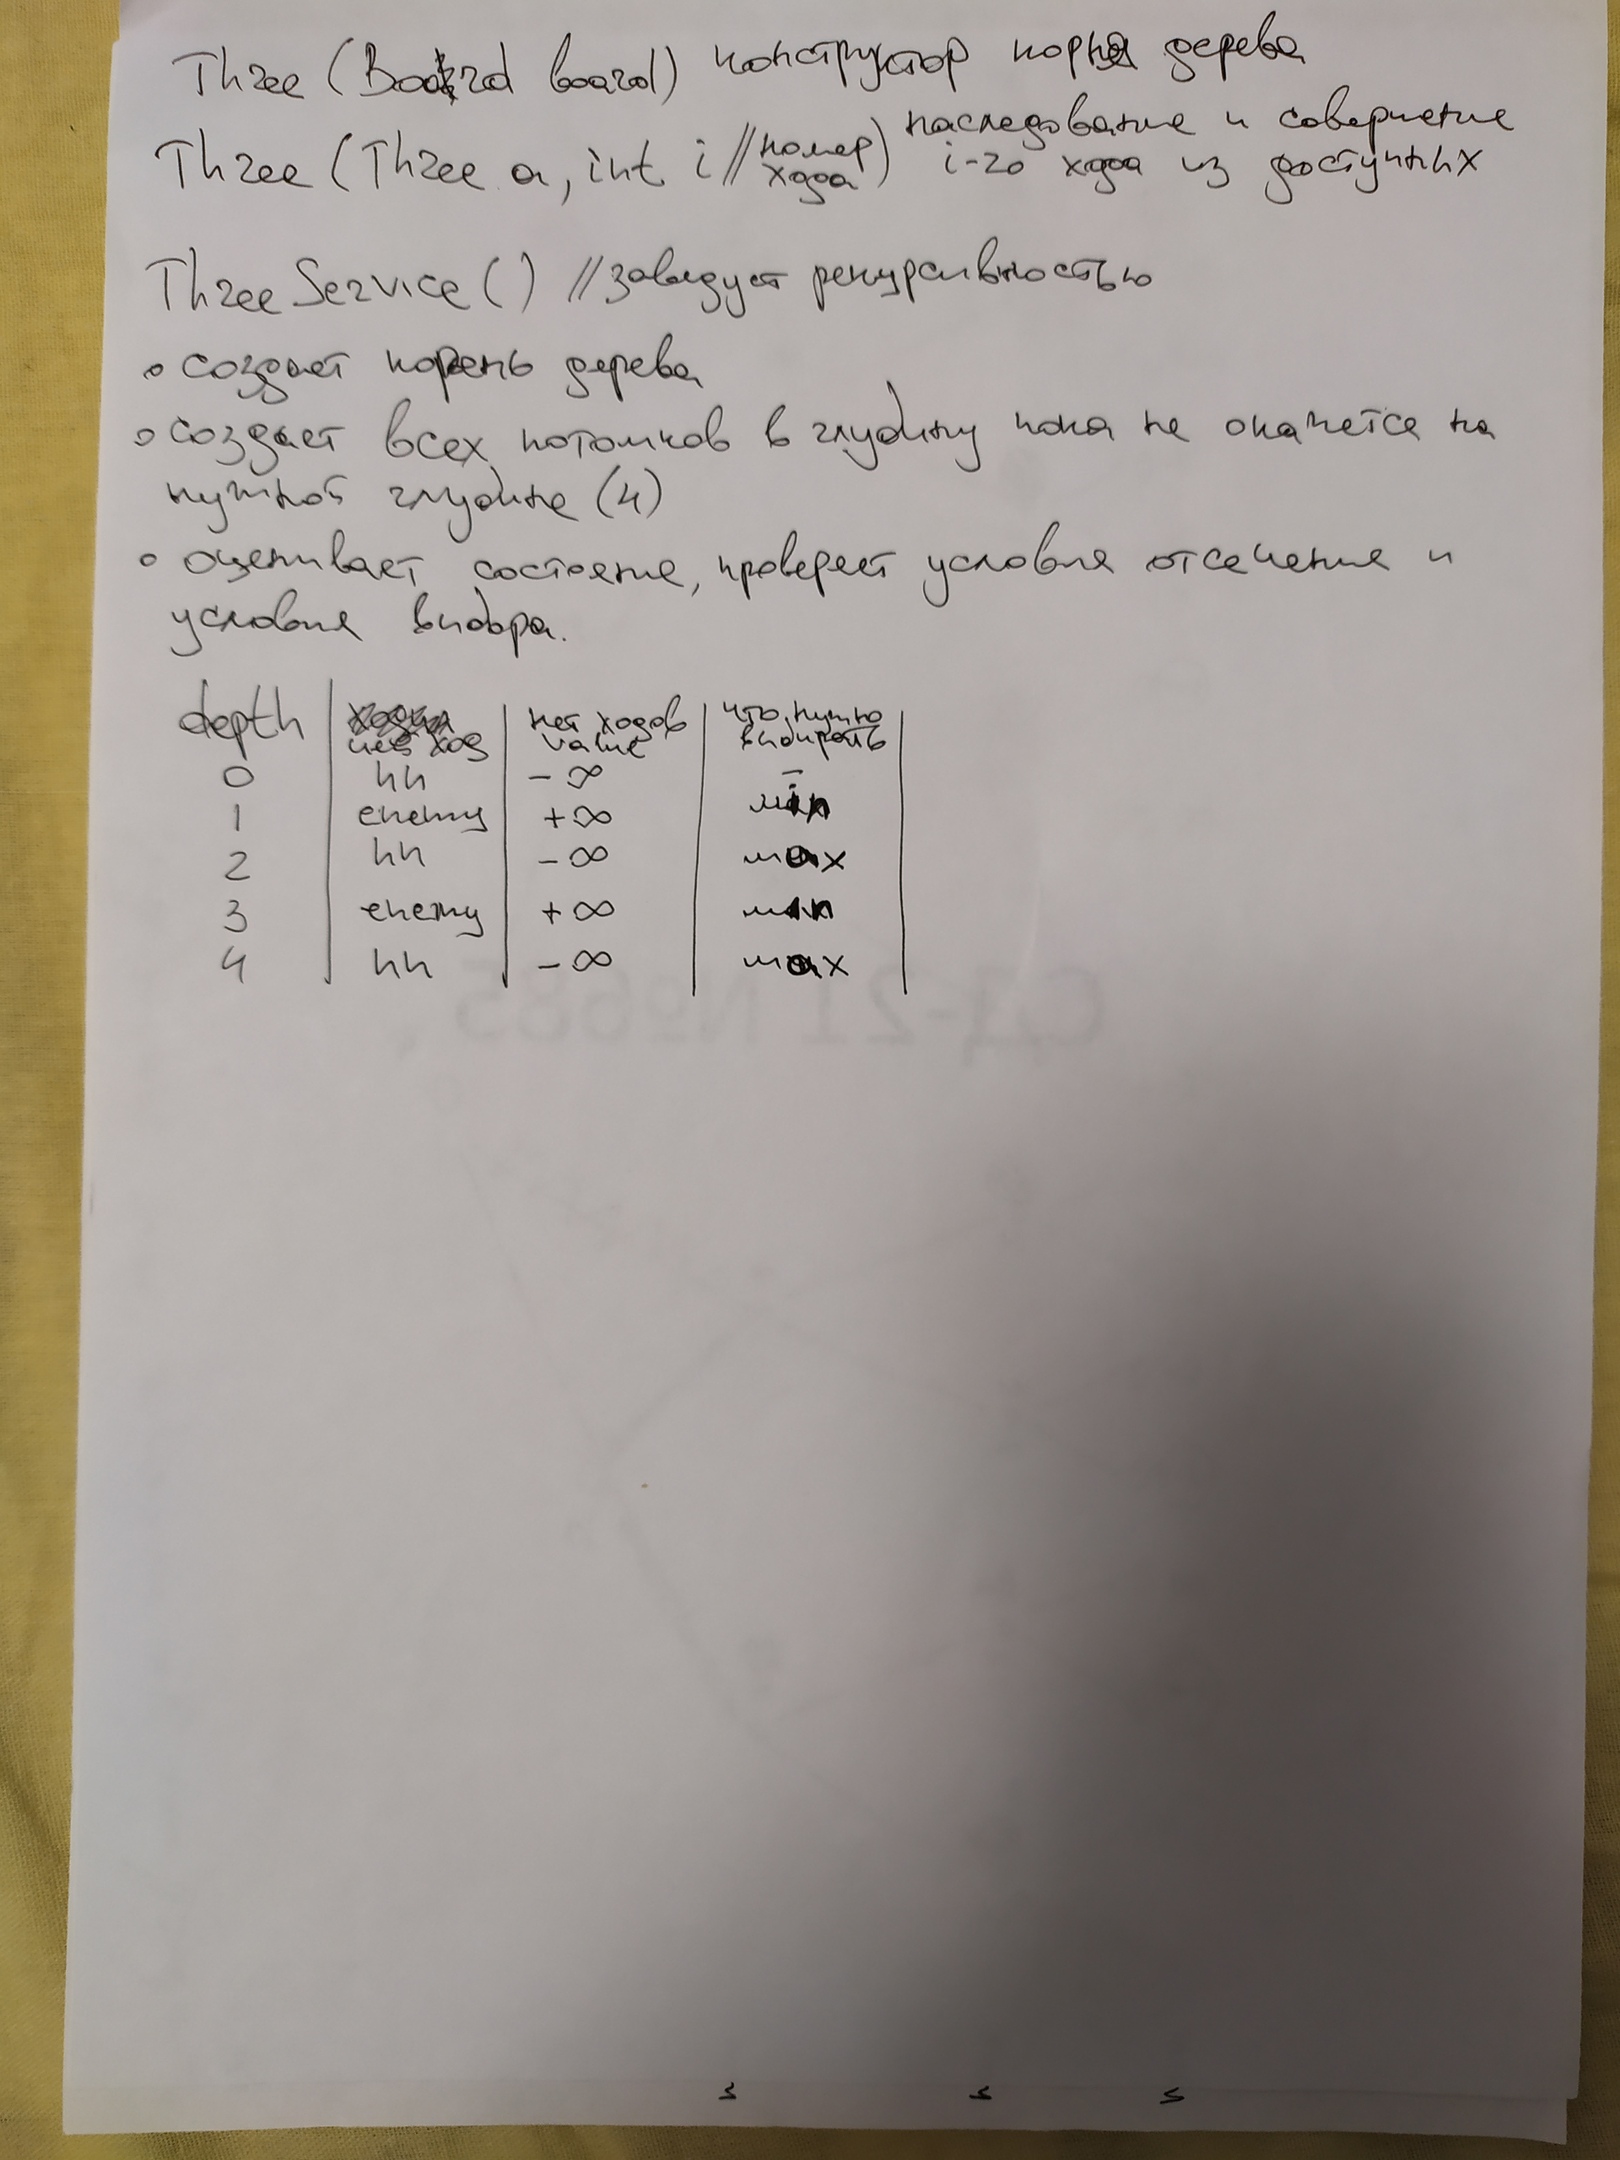 Three (Board board) конструктор корня дерева
Three (Three a, int i // номер хода) наследование и совершение i-го хода из доступных
Three Service () // заведует рекурсивностью
• создает корень дерева
• создает всех потомков в глубину пока не окажется на
нужной глубине (4)
• оценивает состояние, проверяет условия отсечения и
условия выбора.
depth | чей ход | нет ходов value | что нужно выбирать
0 | нн | - ∞ | -
1 | enemy | + ∞ | min
2 | нн | - ∞ | max
3 | enemy | + ∞ | min
4 | нн | - ∞ | max
СД-21 №6685